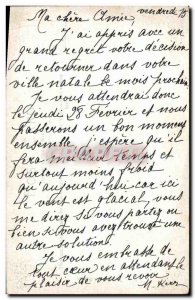 vendredi
Ma chère Amie,
J'ai appris avec un
grand regret votre décision
de retourner dans votre
ville natale le mois prochain
Je vous attendrai donc
le jeudi 28 Février et nous
passerons un bon moment
ensemble, j'espère qu'il
fera meilleur temps et
surtout moins froid
qu'aujourd'hui car ici
le vent est glacial, vous
me direz si vous partez ou
bien si vous avez trouvé une
autre solution.
Je vous embrasse de
tout cœur en attendant le
plaisir de vous revoir